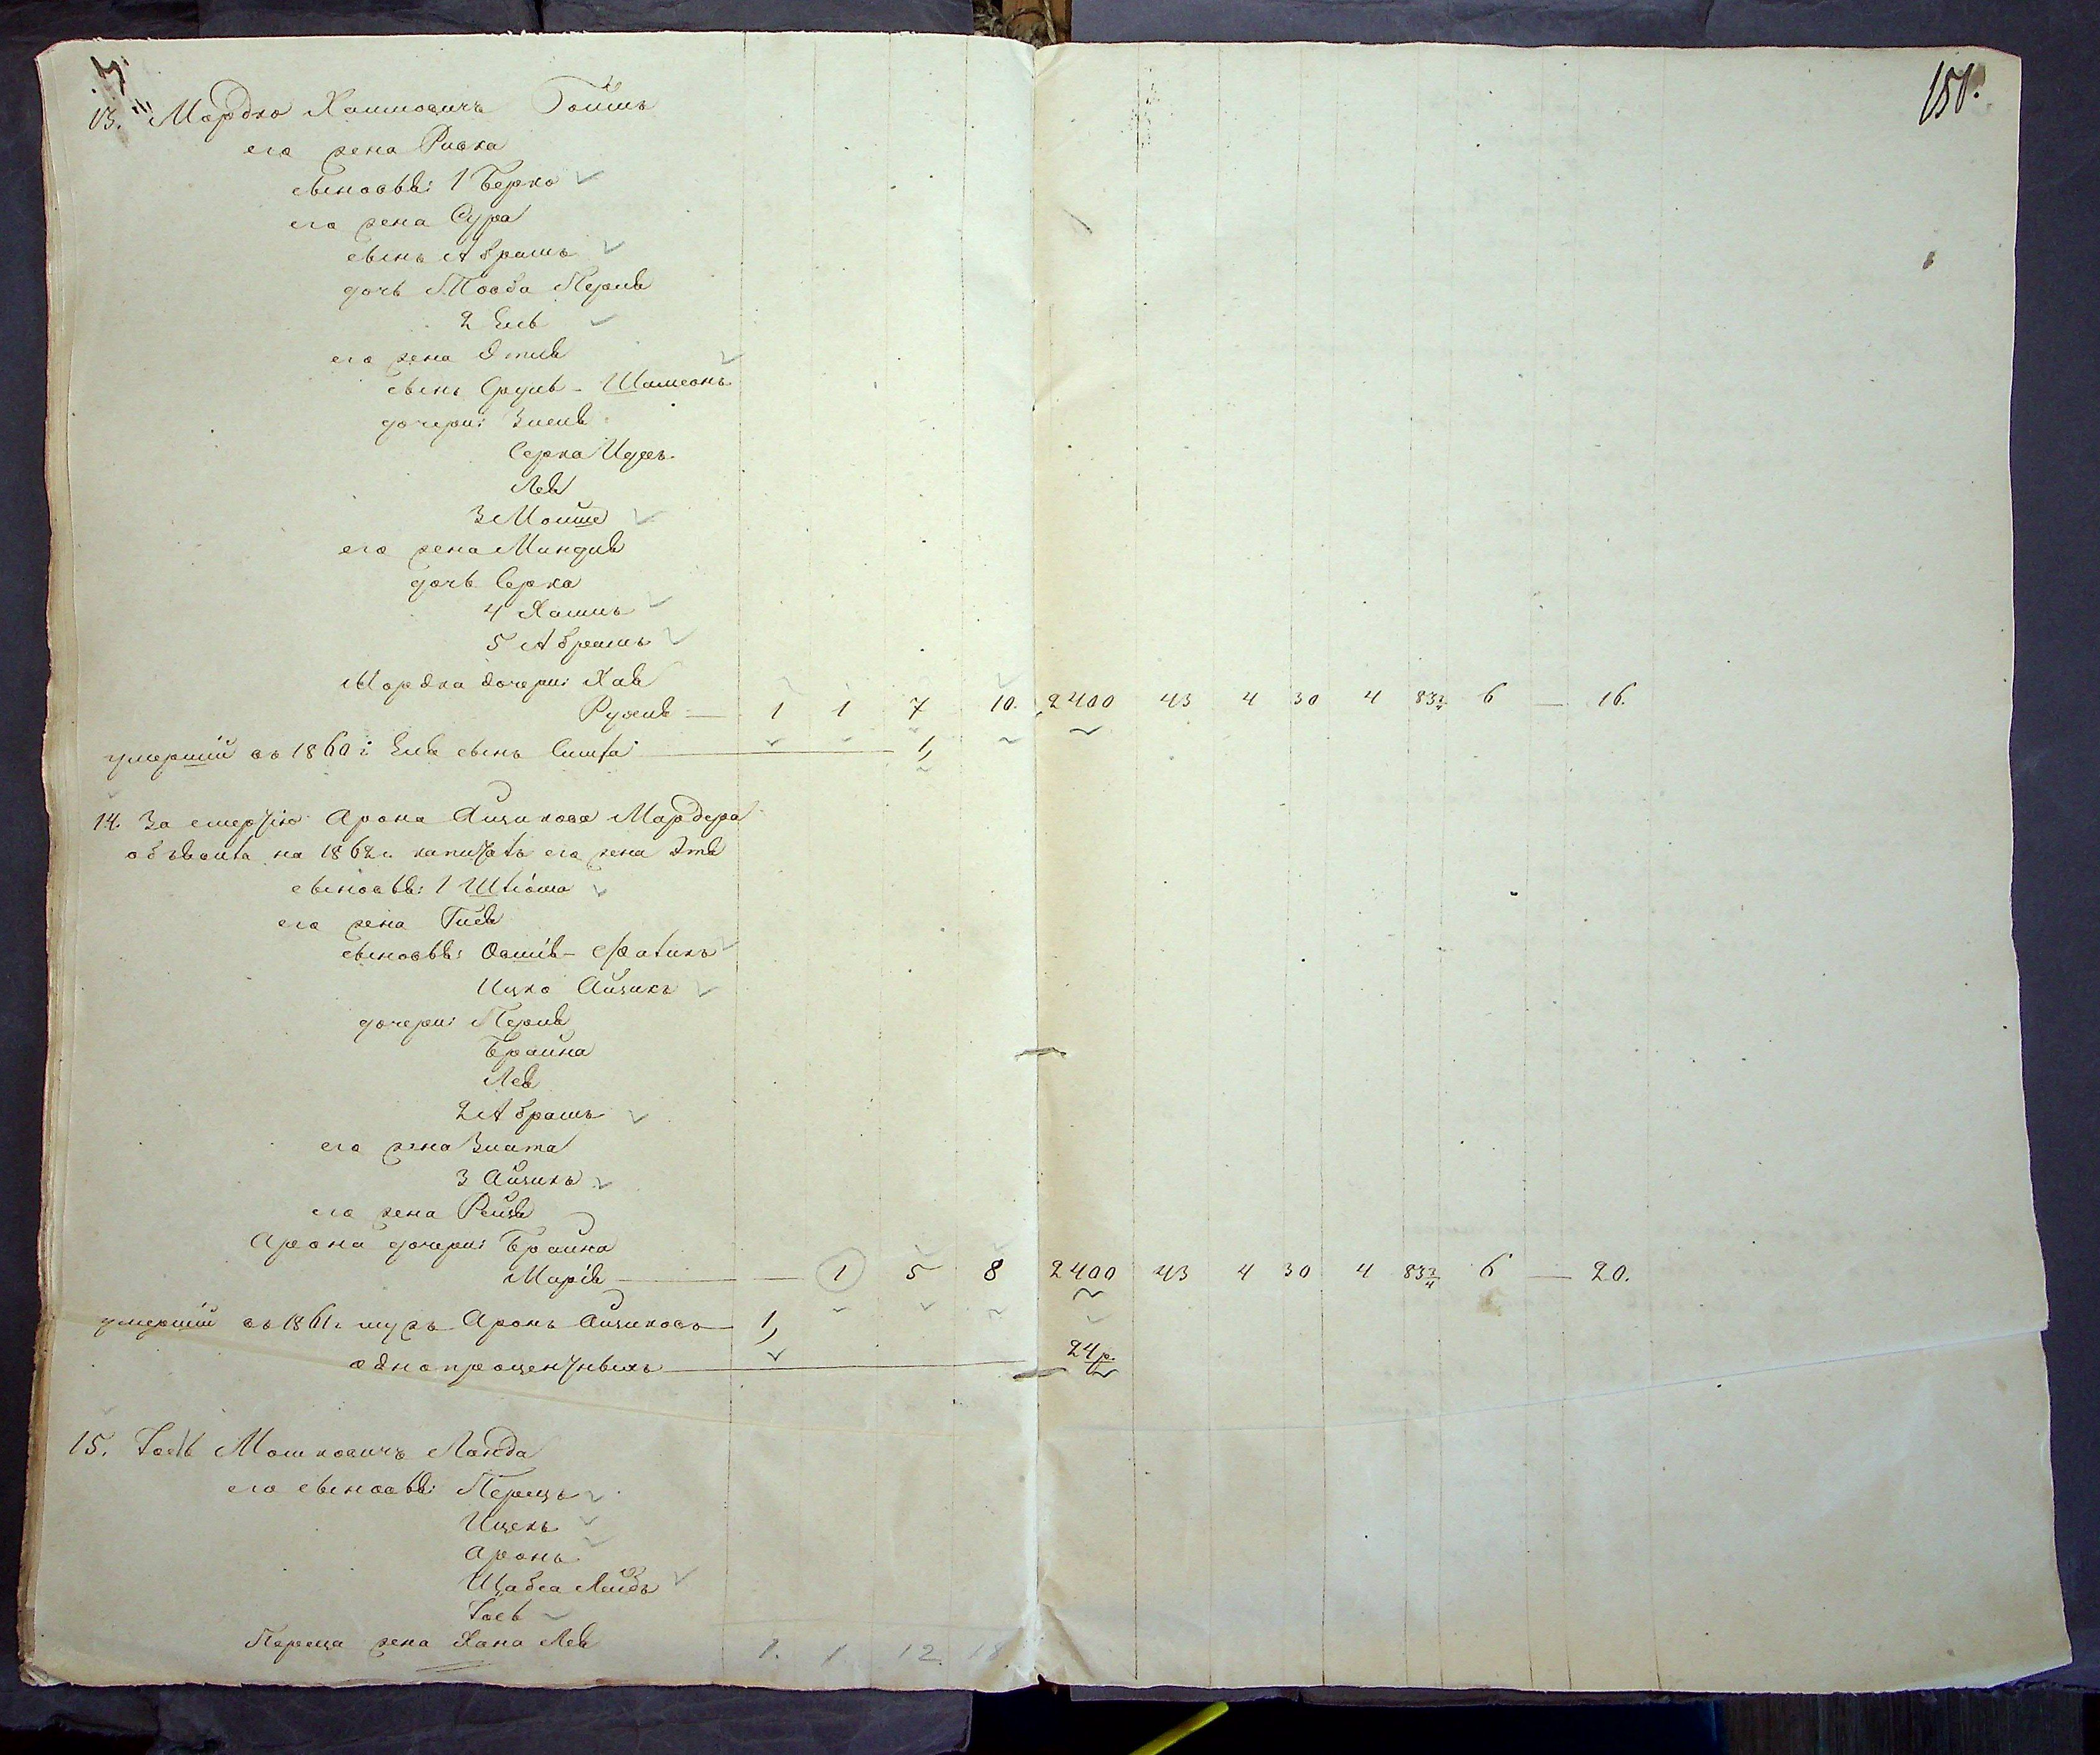 151.
13. Мордко Хаимовичъ Гойшъ
его жена Ривка
сыновья: 1 Берко
его жена Сура
сынъ Абрамъ
дочь Тоба Перля
2 Эля
его жена Этля
сынъ Сруль-Шимсонъ
дочери: Зисля
Серка Идесъ
Лея
3 Мойше
его жена Миндля
дочь Серка
4 Хаимъ
5 Абрамъ
Мордка дочери: Хая
Рухля — 1 1 7 10. 2400 43 4 30 4 83¾ 6 — 16.
умершій въ 1860 г Эля сынъ Симха — 1,
14. За смертію Арона Айзикова Мардера
объявила на 1862 г. капиталъ его жена Этя
сыновья: 1 Штіома
его жена Гися
сыновья: Овшія-Фатикъ
Ицко Айзикъ
дочери: Перля
Брайна
Лея
2 Абрамъ
его жена Злата
3 Айзикъ
его жена Рейзя
Арона дочери: Брайна
Марія — — 1 5 8 2400 43 4 30 4 83¾ 6 — 20.
умершій въ 1861 г. мужъ Аронъ Айзиковъ — 1,
однопроцентныхъ — 24 р.
15. Іось Мошковичъ Ланда
его сыновья: Перецъ
Ицекъ
Аронъ
Шабса Лейбъ
Іось
Переца жена Хана Лея
1. 1 12. 18.